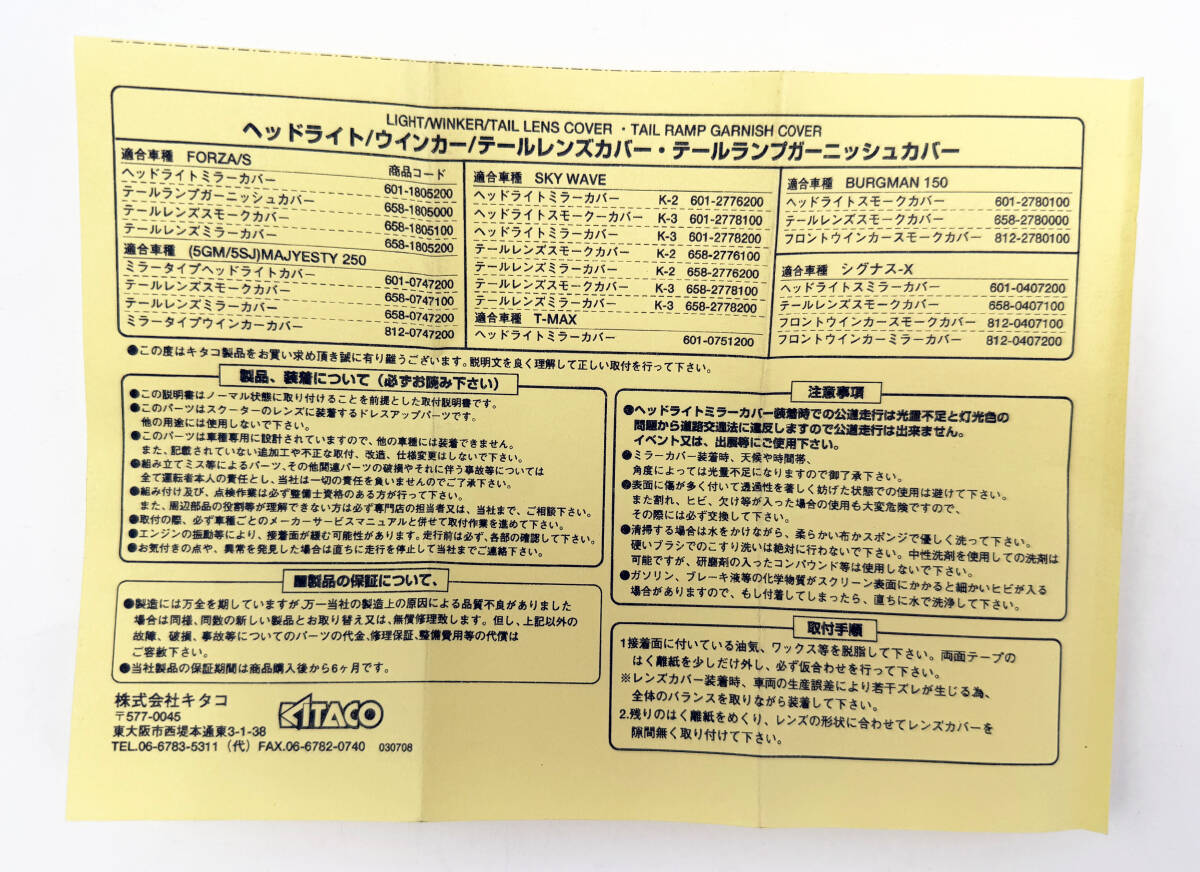 LIGHT/WINKER/TAIL LENS COVER ・ TAIL RAMP GARNISH COVER
ヘッドライト/ウインカー/テールレンズカバー・テールランプガーニッシュカバー
適合車種 FORZA/S 商品コード
ヘッドライトミラーカバー 601-1805200
テールランプガーニッシュカバー 658-1805000
テールレンズスモークカバー 658-1805100
テールレンズミラーカバー 658-1805200
適合車種 (5GM/5SJ)MAJYESTY 250
ミラータイプヘッドライトカバー 601-0747200
テールレンズスモークカバー 658-0747100
テールレンズミラーカバー 658-0747200
ミラータイプウインカーカバー 812-0747200
適合車種 SKY WAVE
ヘッドライトミラーカバー K-2 601-2776200
ヘッドライトスモークカバー K-3 601-2778100
ヘッドライトミラーカバー K-3 601-2778200
テールレンズスモークカバー K-2 658-2776100
テールレンズミラーカバー K-2 658-2776200
テールレンズスモークカバー K-3 658-2778100
テールレンズミラーカバー K-3 658-2778200
適合車種 T-MAX
ヘッドライトミラーカバー 601-0751200
適合車種 BURGMAN 150
ヘッドライトスモークカバー 601-2780100
テールレンズスモークカバー 658-2780000
フロントウインカースモークカバー 812-2780100
適合車種 シグナス-X
ヘッドライトスミラーカバー 601-0407200
テールレンズスモークカバー 658-0407100
フロントウインカースモークカバー 812-0407100
フロントウインカーミラーカバー 812-0407200
●この度はキタコ製品をお買い求め頂き誠に有り難うございます。説明文を良く理解して正しい取付を行って下さい。
製品、装着について（必ずお読み下さい）
●この説明書はノーマル状態に取り付けることを前提とした取付説明書です。
●このパーツはスクーターのレンズに装着するドレスアップパーツです。
他の用途には使用しないで下さい。
●このパーツは車種専用に設計されていますので、他の車種には装着できません。
また、記載されていない追加工や不正な取付、改造、仕様変更はしないで下さい。
●組み立てミス等によるパーツ、その他関連パーツの破損やそれに伴う事故等については
全て運転者本人の責任とし、当社は一切の責任を負いませんのでご了承下さい。
●組み付け及び、点検作業は必ず整備士資格のある方が行って下さい。
また、周辺部品の役割等が理解できない方は必ず専門店の担当者又は、当社まで、ご相談下さい。
●取付の際、必ず車種ごとのメーカーサービスマニュアルと併せて取付作業を進めて下さい。
●エンジンの振動等により、接着面が緩む可能性があります。走行前は必ず、各部の確認して下さい。
●お気付きの点や、異常を発見した場合は直ちに走行を停止して当社までご連絡下さい。
■製品の保証について、
●製造には万全を期していますが、万一当社の製造上の原因による品質不良がありました
場合は同様、同数の新しい製品とお取り替え又は、無償修理致します。但し、上記以外の
故障、破損、事故等についてのパーツの代金、修理保証、整備費用等の代償は
ご容赦下さい。
●当社製品の保証期間は商品購入後から6ヶ月です。
株式会社キタコ
〒577-0045
東大阪市西堤本通東3-1-38
TEL.06-6783-5311（代）FAX.06-6782-0740 030708
KITACO
注意事項
●ヘッドライトミラーカバー装着時での公道走行は光量不足と灯光色の
問題から道路交通法に違反しますので公道走行は出来ません。
イベント又は、出展等にご使用下さい。
●ミラーカバー装着時、天候や時間帯、
角度によっては光量不足になりますので御了承下さい。
●表面に傷が多く付いて透過性を著しく妨げた状態での使用は避けて下さい。
また割れ、ヒビ、欠け等が入った場合の使用も大変危険ですので、
その際には必ず交換して下さい。
●清掃する場合は水をかけながら、柔らかい布かスポンジで優しく洗って下さい。
硬いブラシでのこすり洗いは絶対に行わないで下さい。中性洗剤を使用しての洗剤は
可能ですが、研磨剤の入ったコンパウンド等は使用しないで下さい。
●ガソリン、ブレーキ液等の化学物質がスクリーン表面にかかると細かいヒビが入る
場合がありますので、もし付着してしまったら、直ちに水で洗浄して下さい。
取付手順
1接着面に付いている油気、ワックス等を脱脂して下さい。両面テープの
はく離紙を少しだけ外し、必ず仮合わせを行って下さい。
※レンズカバー装着時、車両の生産誤差により若干ズレが生じる為、
全体のバランスを取りながら装着して下さい。
2.残りのはく離紙をめくり、レンズの形状に合わせてレンズカバーを
隙間無く取り付けて下さい。